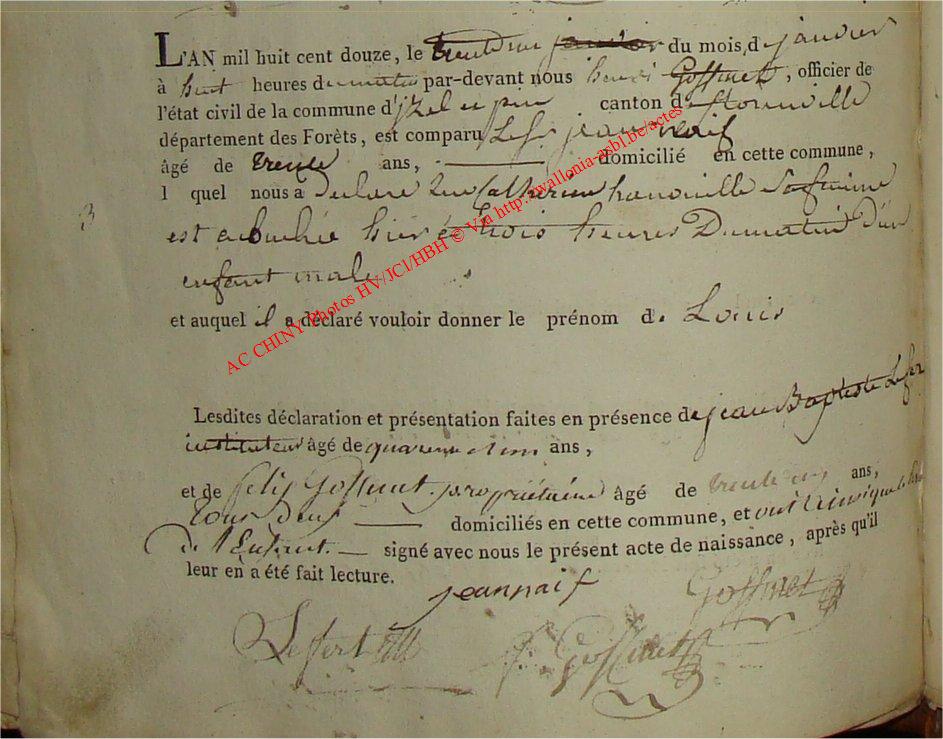 L'AN mil huit cent douze, le trente un janvier du mois d janvier
à huit heures du matin par-devant nous henri Goffinet, officier de
l'état civil de la commune d'izel en pin canton d florenville
département des Forêts, est comparu Le Sr jean naif
âgé de trente ans, domicilié en cette commune,
l quel nous a declaré que Catherine hanouille sa femme
est acouchée hier à trois heures Du matin d'un
enfant male
3
et auquel il a déclaré vouloir donner le prénom d. Louis
Lesdites déclaration et présentation faites en présence de jean Baptiste Lefer
instituteur âgé de quarante et un ans,
et de felix Goffinet proprietaire âgé de trente ans,
tous deux domiciliés en cette commune, et ont ainsi que le
de l'Enfant. signé avec nous le présent acte de naissance, après qu'il
leur en a été fait lecture.
jean naif Goffinet
Lefert f. Goffinet
AC CHINY Photos HV/JCl/HBH © Via http://wallonia-asbl.be/actes